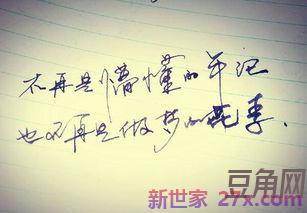 不再是懵懂的年记
也不再是做梦的花季.
豆角网
新世家 27x.com